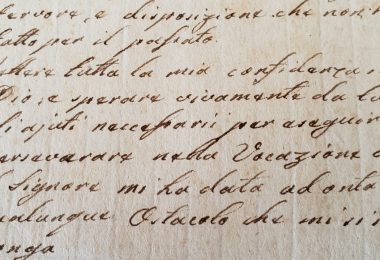 fervore, e disposizione che non
fatto per il passato.
ettere tutta la mia confidenza
Dio, e sperare vivamente da
li ajuti neccessarii per eseguir
erseverare nella Vocazione
l Signore mi ha data ad onta
ualunque Ostacolo che mi si
onga